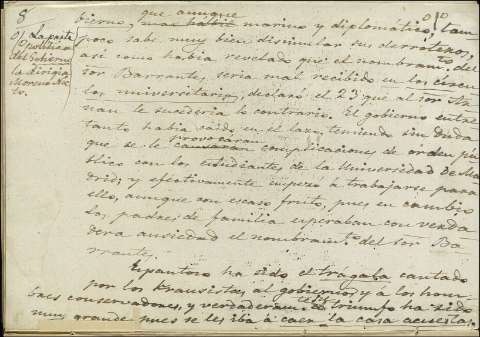 8
que aunque
bierno, mas hábil marino y diplomático, tam
(1) La parte
política
del Gobierno
la dirigia
Moreno Nie
to.
poco sabe muy bien disimular sus derroteros,
así como habia revelado que el nombram.to del
sor Barrantes, seria mal recibido en los círcu
los universitarios, declaró el 23 que al sor
nan le sucederia lo contrario. El gobierno entre
tanto habia caido en el lazo, temiendo sin duda
provocáran
que se le causaran complicaciones de orden pú
blico con los estudiantes de la Universidad de Ma
drid; y efectivamente empezó á trabajarse para
ello, aunque con escaso fruto, pues en cambio
los padres de familia esperaban con verda
dera ansiedad el nombram.to del sor Ba-
rrantes.
Espantoso ha sido el trágala cantado
por los Krausistas al gobierno y á los hom
bres conservadores, y verdaderam.te el triunfo ha sido
muy grande pues se les iba á caer la casa acuestas,